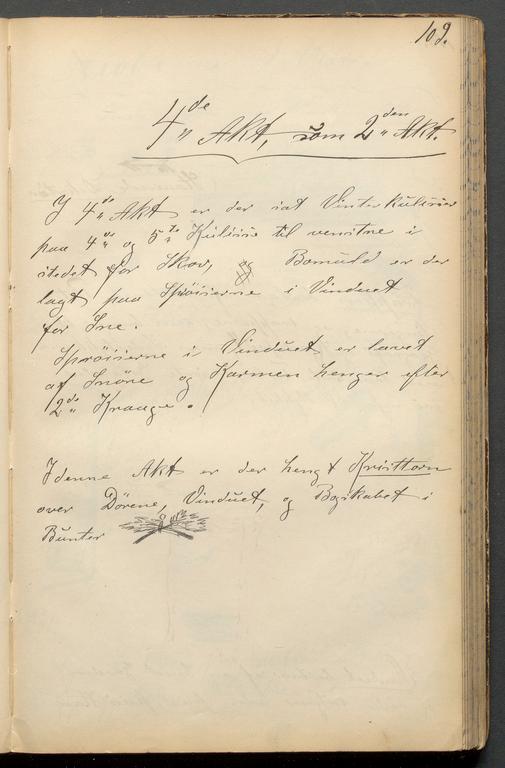 102.
4de Akt, som 2den Akt.
I 4de Akt er der sat Vinterkulisser
paa 4de og 5te Kulisse til venstre i
stedet for Skov, og Bomuld er der
lagt paa Spröisserne i Vinduet
for Sne.
Spröisserne i Vinduet er lavet
af Snöre og Karmen henger efter
2de Kraage.
I denne Akt er der hengt Kristtorn
over Dörene, Vinduet, og Bogskabet i
Bunter